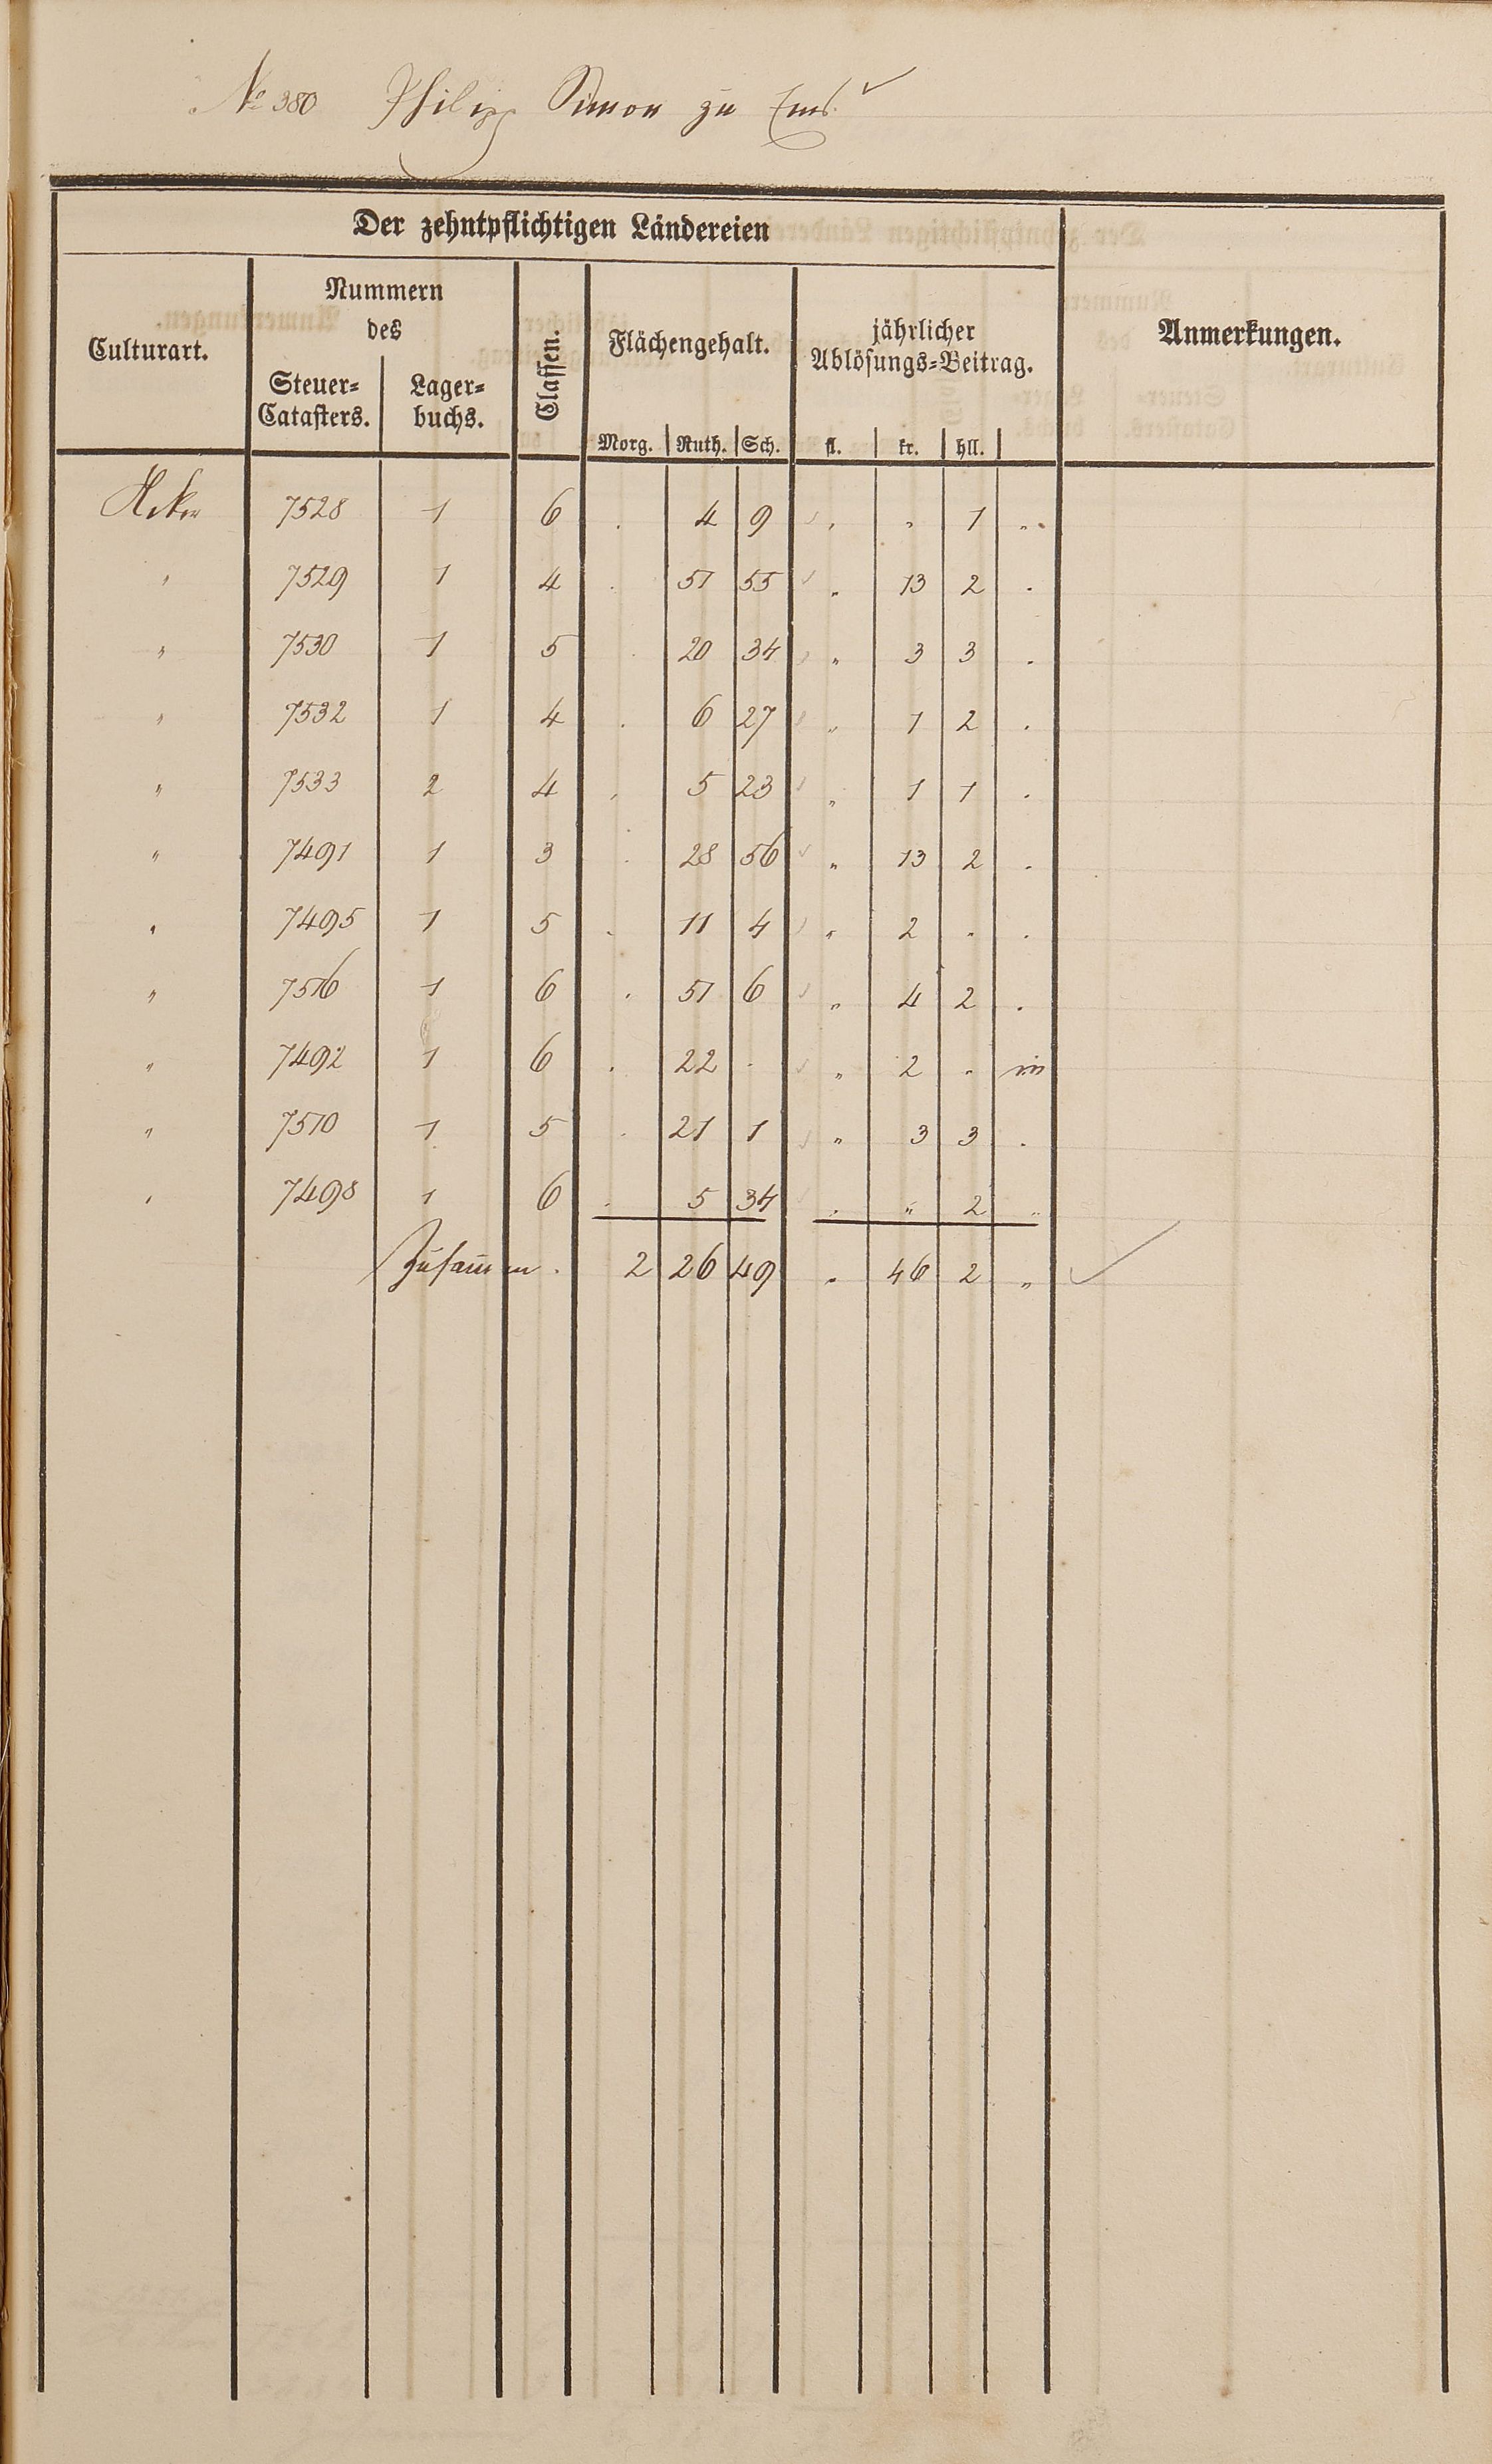 № 380 Philipp Simon zu Ems.
Der zehntpflichtigen Ländereien
Culturart.
Nummern
des
Steuer-
Catasters.
Lager-
buchs.
Classen.
Flächengehalt.
Morg. Ruth. Sch.
jährlicher
Ablösungs-Beitrag.
fl. kr. hll.
Anmerkungen.
Acker 7528 1 6 . 4 9 „ „ 1 „
„ 7529 1 4 . 51 55 „ 13 2 .
„ 7530 1 5 . 20 34 „ 3 3 .
„ 7532 1 4 . 6 27 „ 1 2 .
„ 7533 2 4 . 5 23 „ 1 1 .
„ 7491 1 3 . 28 56 „ 13 2 .
„ 7495 1 5 . 11 4 „ 2 „ .
„ 7516 1 6 . 51 6 „ 4 2 .
„ 7492 1 6 . 22 . „ 2 „
„ 7510 1 5 . 21 1 „ 3 3 .
„ 7498 1 6 . 5 34 „ „ 2 „
Zusammen . 2 26 49 „ 46 2 „